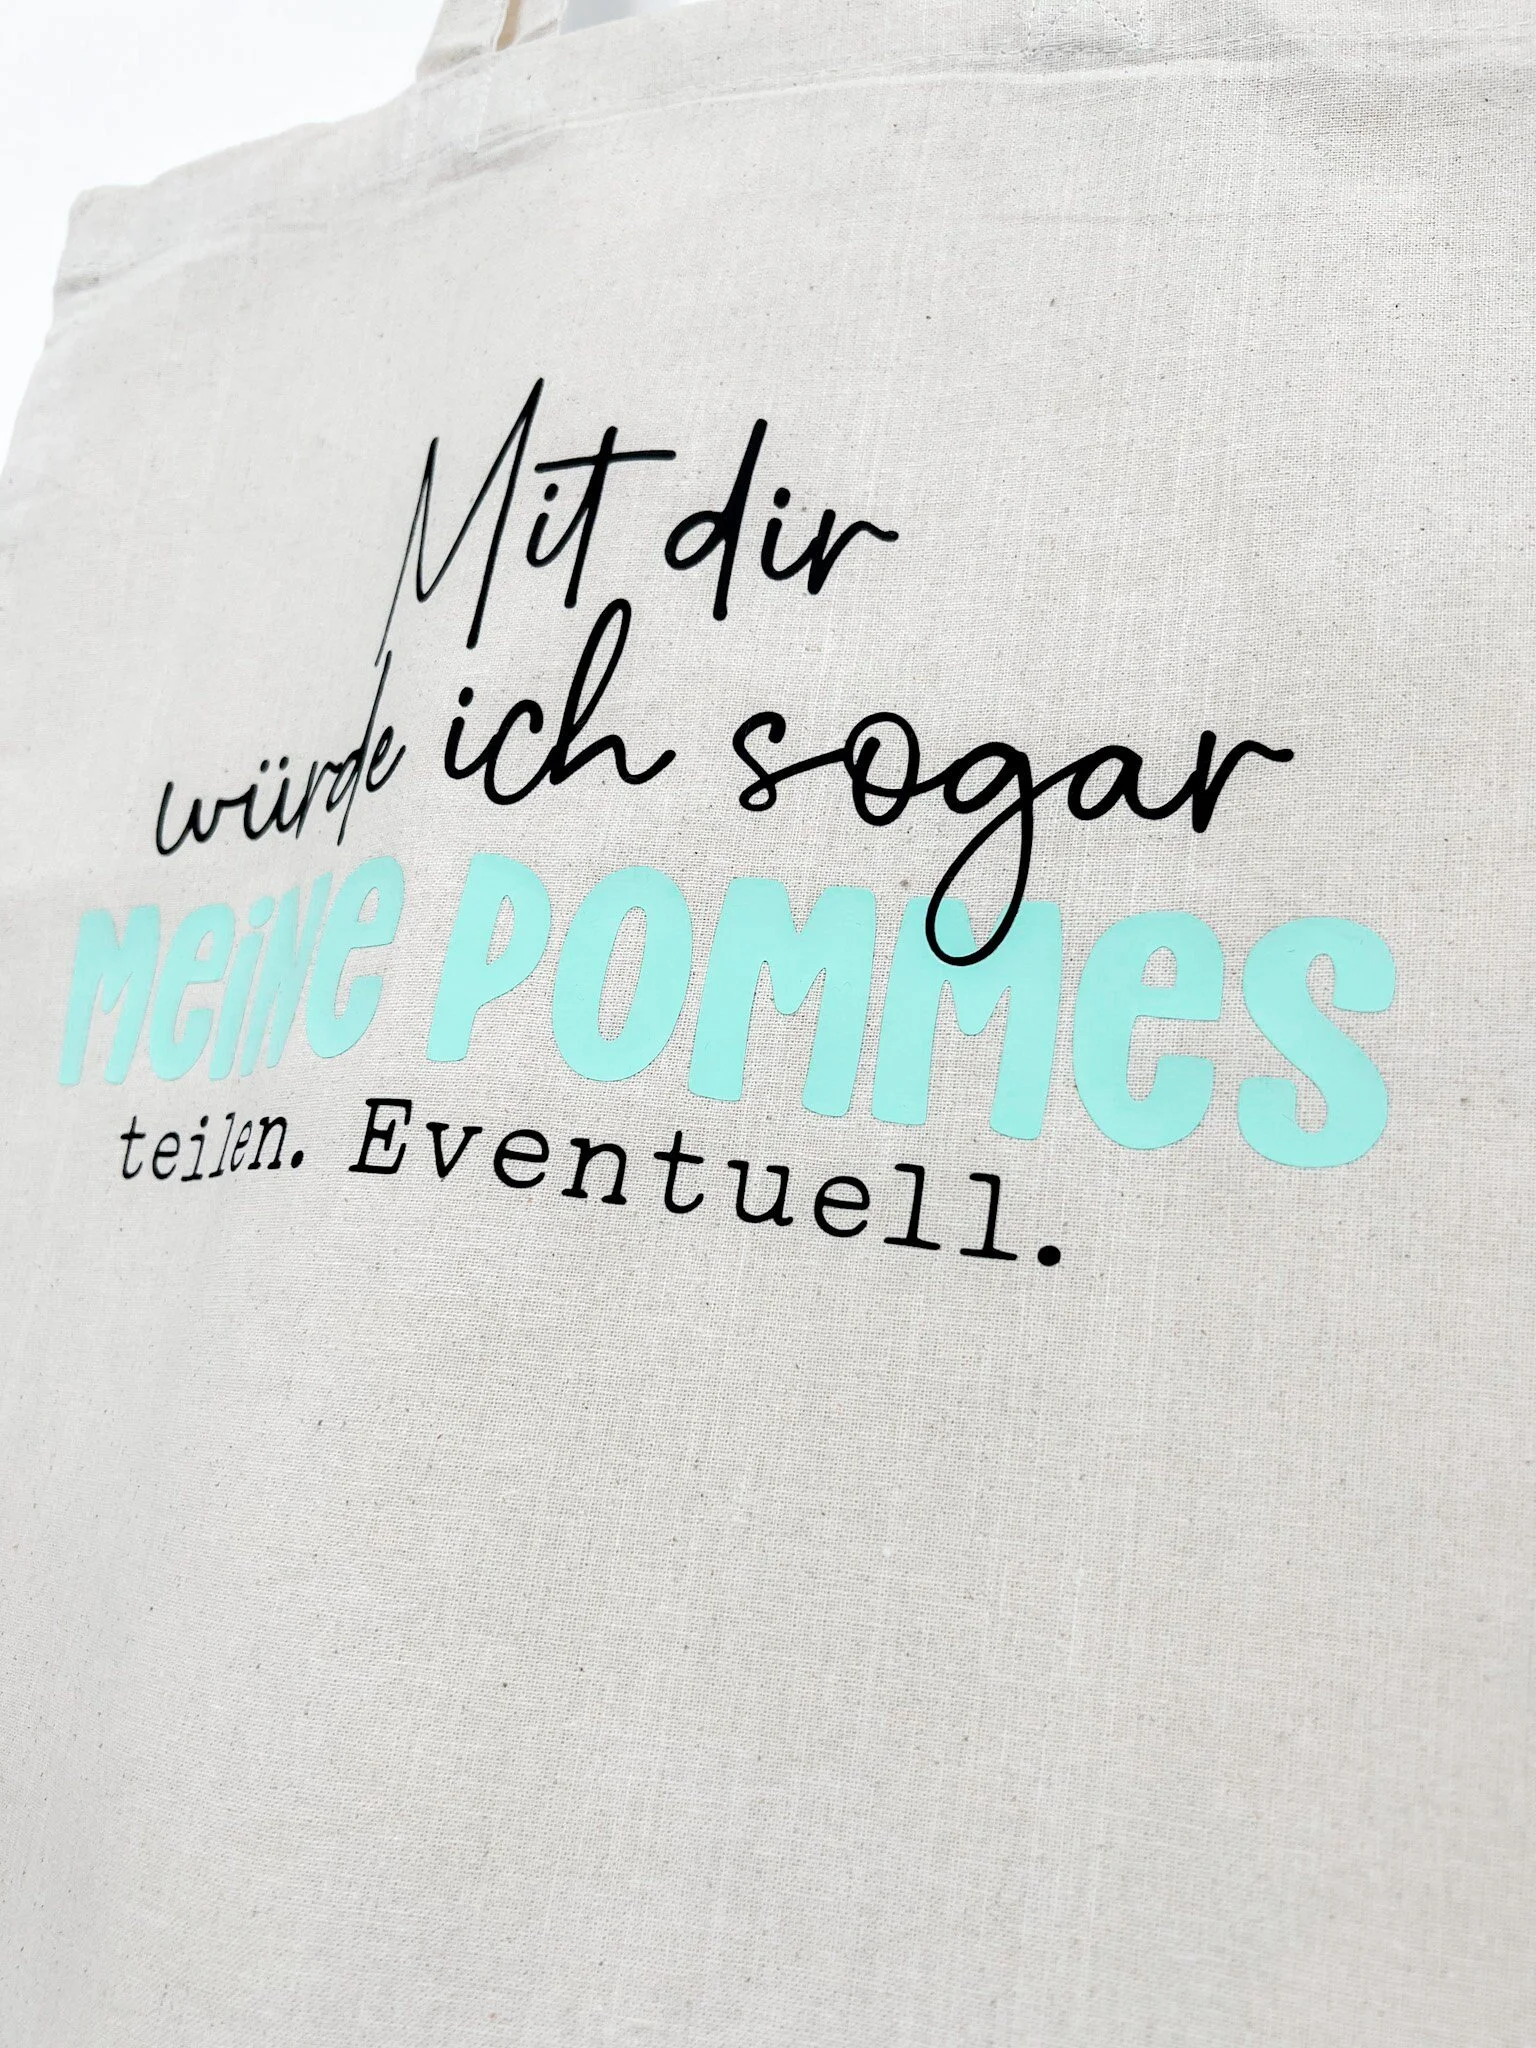 Mit dir
würde ich sogar
MeiNe POMMes
teilen. Eventuell.